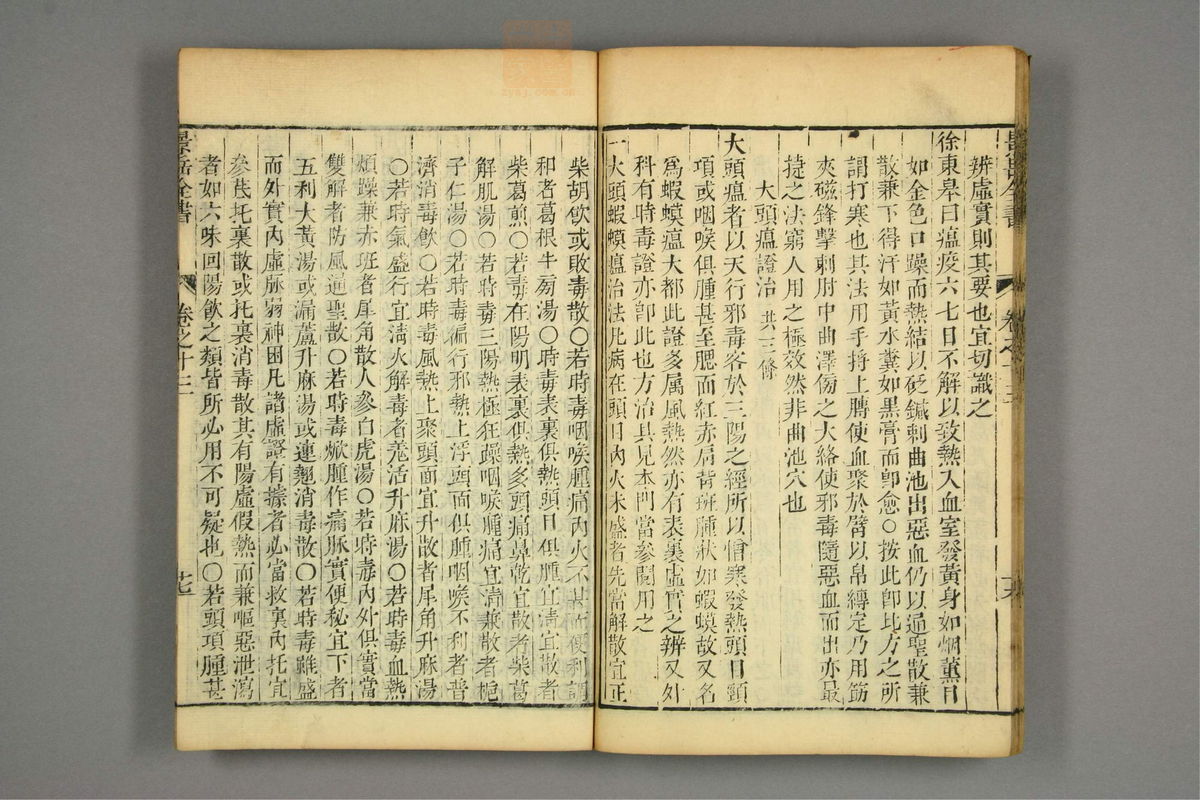 辨虛實則其要也宜切識之
徐東皋曰瘟疫六七日不解以致熱入血室發黃身如烟薰目
如金色口躁而熱結以砭鍼刺曲池出惡血仍以通聖散兼
散兼下得汗如黃水糞如黑膏而卽愈○按此卽北方之所
謂打寒也其法用手捋上膊使血聚於臂以帛縛定乃用筯
夾磁鋒擊刺肘中曲澤傍之大絡使邪毒隨惡血而出亦最
捷之法窮人用之極效然非曲池穴也
大頭瘟證治 共三條
大頭瘟者以天行邪毒客於三陽之經所以憎寒發熱頭目頸
項或咽喉俱腫甚至腮面紅赤肩背斑腫狀如蝦蟆故又名
爲蝦蟆瘟大都此證多属風熱然亦有表裏虛實之辨又外
科有時毒證亦卽此也方治具見本門當參閱用之
一大頭蝦蟆瘟治法凡病在頭目內火未盛者先當解散宜正
柴胡飲或敗毒散○若時毒咽喉腫痛內火不甚而便利調
和者葛根牛蒡湯○時毒表裏俱熱頭目俱腫宜清宜散者
柴葛煎○若毒在陽明表裏俱熱多頭痛鼻乾宜散者柴葛
解肌湯○若時毒三陽熱極狂躁咽喉腫痛宜清兼散者梔
子仁湯○若時毒徧行邪熱上浮頭面俱腫咽喉不利者普
濟消毒飲○若時毒風熱上聚頭面宜升散者犀角升麻湯
○若時氣盛行宜清火解毒者羌活升麻湯○若時毒血熱
煩躁兼赤斑者犀角散人參白虎湯○若時毒內外俱實當
雙解者防風通聖散○若時毒焮腫作痛脉實便秘宜下者
五利大黃湯或漏蘆升麻湯或連翹消毒散○若時毒雖盛
而外實內虛脉弱神困凡諸虛證有據者必當救裏內托宜
參芪托裏散或托裏消毒散其有陽虛假熱而兼嘔惡泄瀉
者如六味回陽飲之類皆所必用不可疑也○若頭項腫甚
景岳全書
卷之十三
卄七
zysj.com.cn